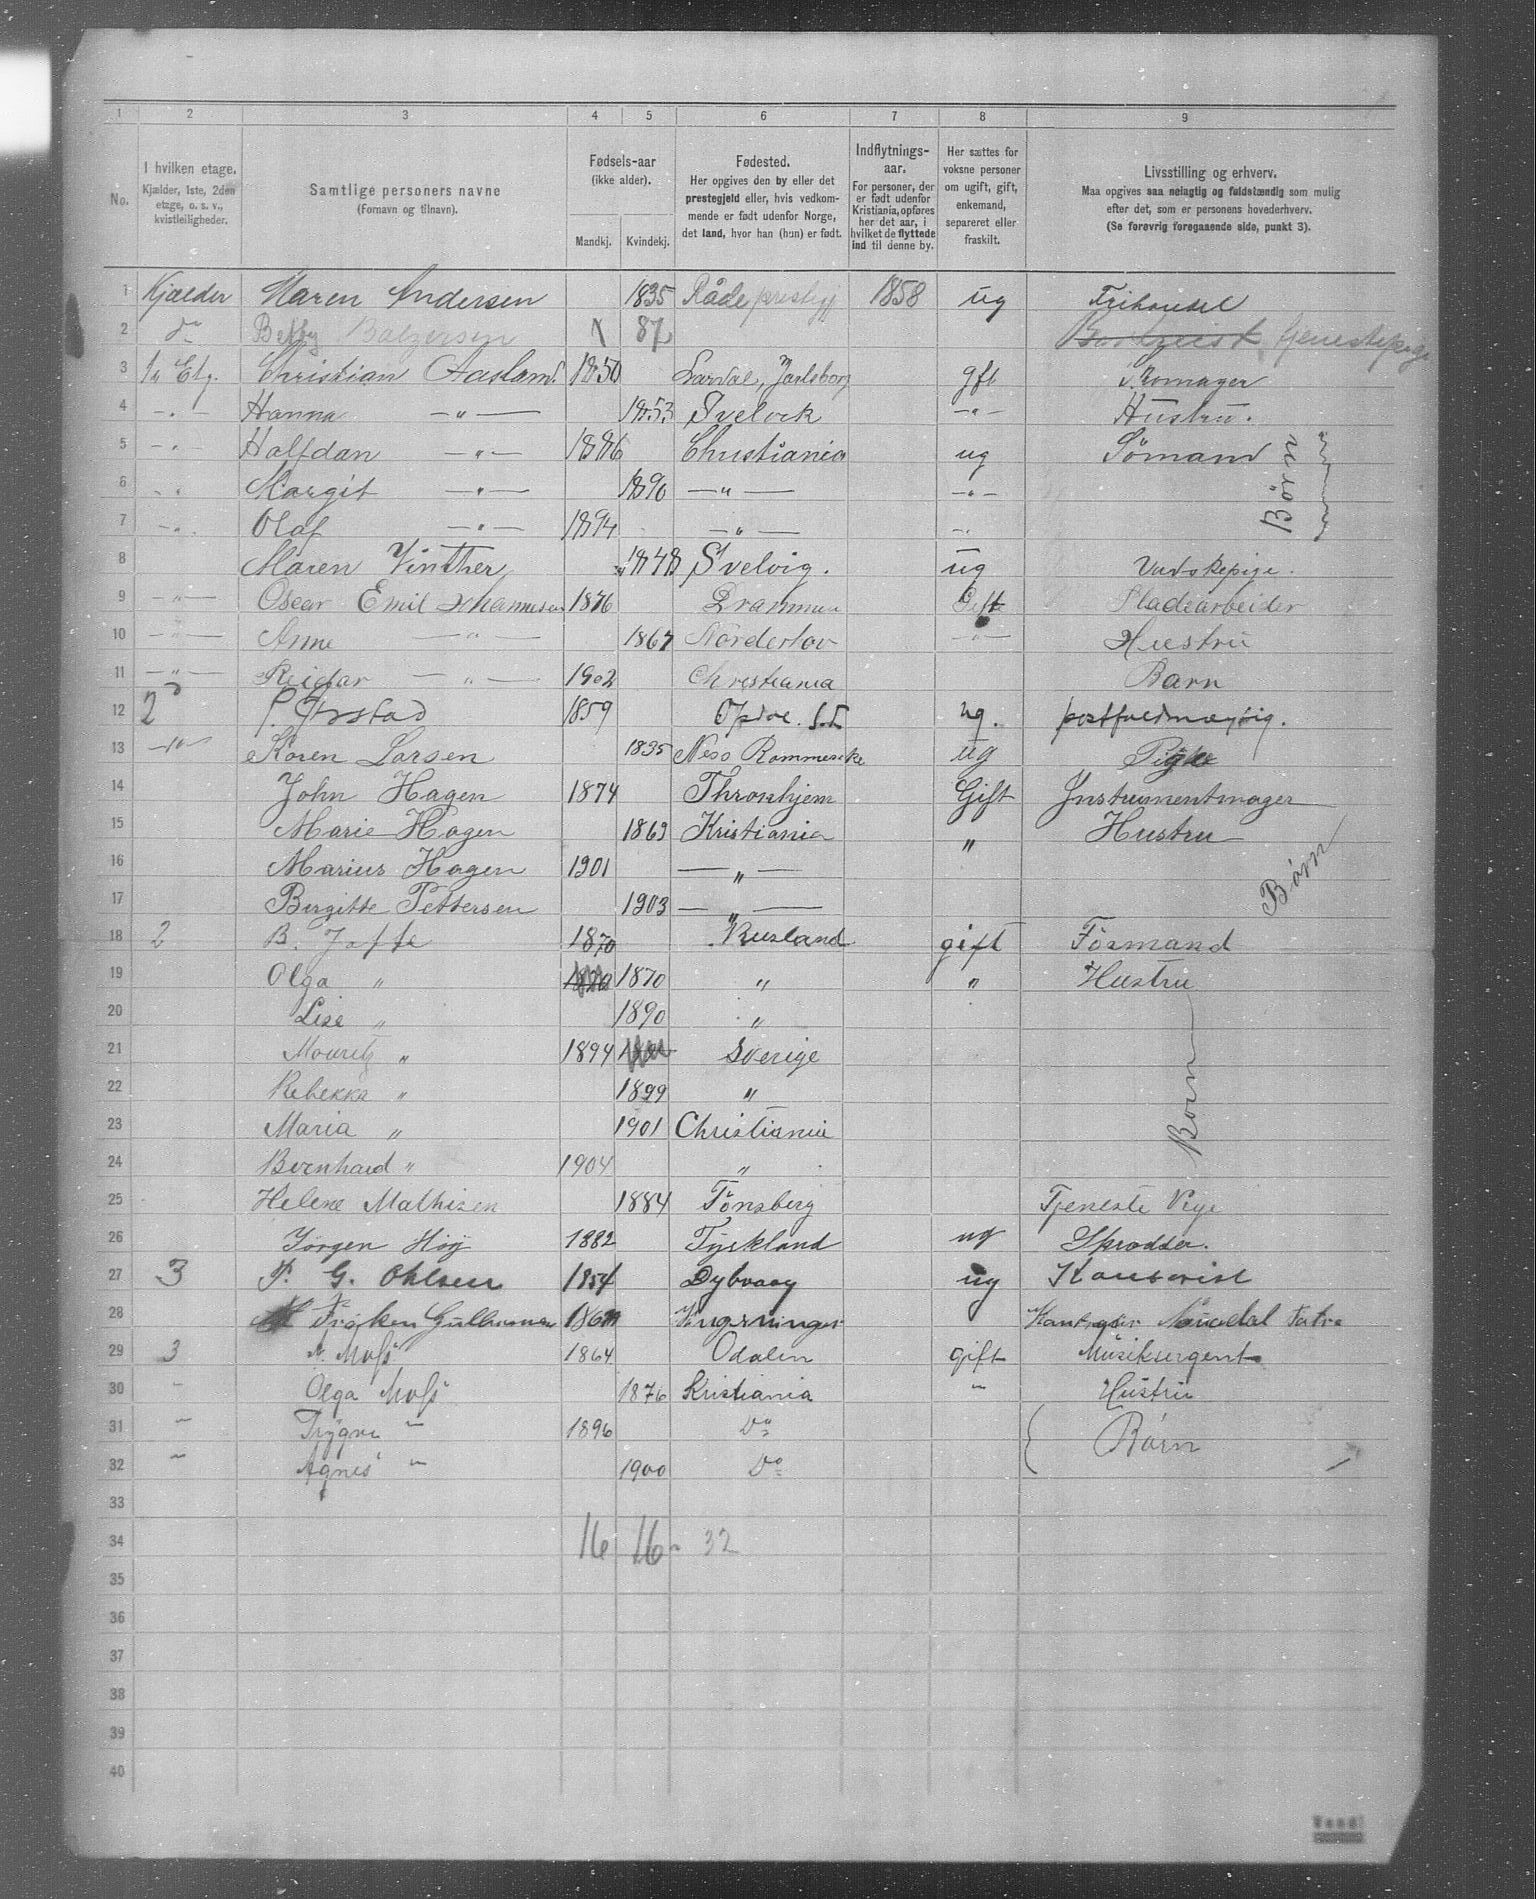 1 2 3 4 5 6 7 8 9
No.
I hvilken etage. Kjælder, 1ste, 2den etage, o. s. v., kvistleiligheder.
Samtlige personers navne (Fornavn og tilnavn).
Fødsels-aar (ikke alder).
Mandkj. Kvindekj.
Fødested. Her opgives den by eller det prestegjeld eller, hvis vedkommende er født udenfor Norge, det land, hvor han (hun) er født.
Indflytnings-aar. For personer, der er født udenfor Kristiania, opføres her det aar, i hvilket de flyttede ind til denne by.
Her sættes for voksne personer om ugift, gift, enkemand, separeret eller fraskilt.
Livsstilling og erhverv. Maa opgives saa nøiagtig og fuldstændig som mulig efter det, som er personens hovederhverv. (Se forøvrig foregaaende side, punkt 3).
1 Kjælder Maren Andersen 1835 Råde prestegj 1858 ug Frihandel
2 do Betsy Balzersen 87 tjenestepige
3 1ste Etg. Christian Aasland 1850 Lardal, Jarlsberg gft Skomager
4 -„- Hanna -„- 1853 Svelvik -„- Hustru.
5 -„- Halfdan -„- 1886 Christiania ug Sømand
6 -„- Margit -„- 1890 -„- -„-
7 -„- Olaf -„- 1894 -„- -„-
Børn
8 Maren Vinther 1848 Svelvig. ug Vadskepige.
9 -„- Oscar Emil Johannesen 1876 Drammen Gift Pladearbeider
10 -„- Anne -„- 1867 Nordertov -„- Hustru
11 -„- Reidar -„- 1902 Christiania Barn
12 2 1859 ug.
13 -„- Karen Larsen 1835 Næs Rommerike ug Pige
14 John Hagen 1874 Throndhjem Gift Instrumentmager
15 Marie Hagen 1869 Kristiania „ Hustru
16 Marius Hagen 1901 -„-
17 Birgitte Pettersen 1903 -„-
Børn
18 2 B. Jaffe 1870 Rusland gift Formand
19 Olga „ 1870 „ „ Hustru
20 Lise „ 1890 „
21 Mouritz „ 1894 Sverige
22 Rebekka „ 1899 „
23 Maria „ 1901 Christiania
24 Bernhard „ 1904 „
Børn
25 Helene Mathisen 1884 Tönsberg Tjeneste Pige
26 Jørgen Höy 1882 Tyskland ug
27 3 P. G. Ohlsen 1854 Dybvaag ug
28 Frøken
29 3 A. Moss 1864 Odalen gift Musiksergent
30 - Olga Moss 1876 Kristiania „ Hustru
31 - Trygve „ 1896 Do
32 - Agnes „ 1900 Do
Børn
33
34 16 16 - 32
35
36
37
38
39
40
Vend!